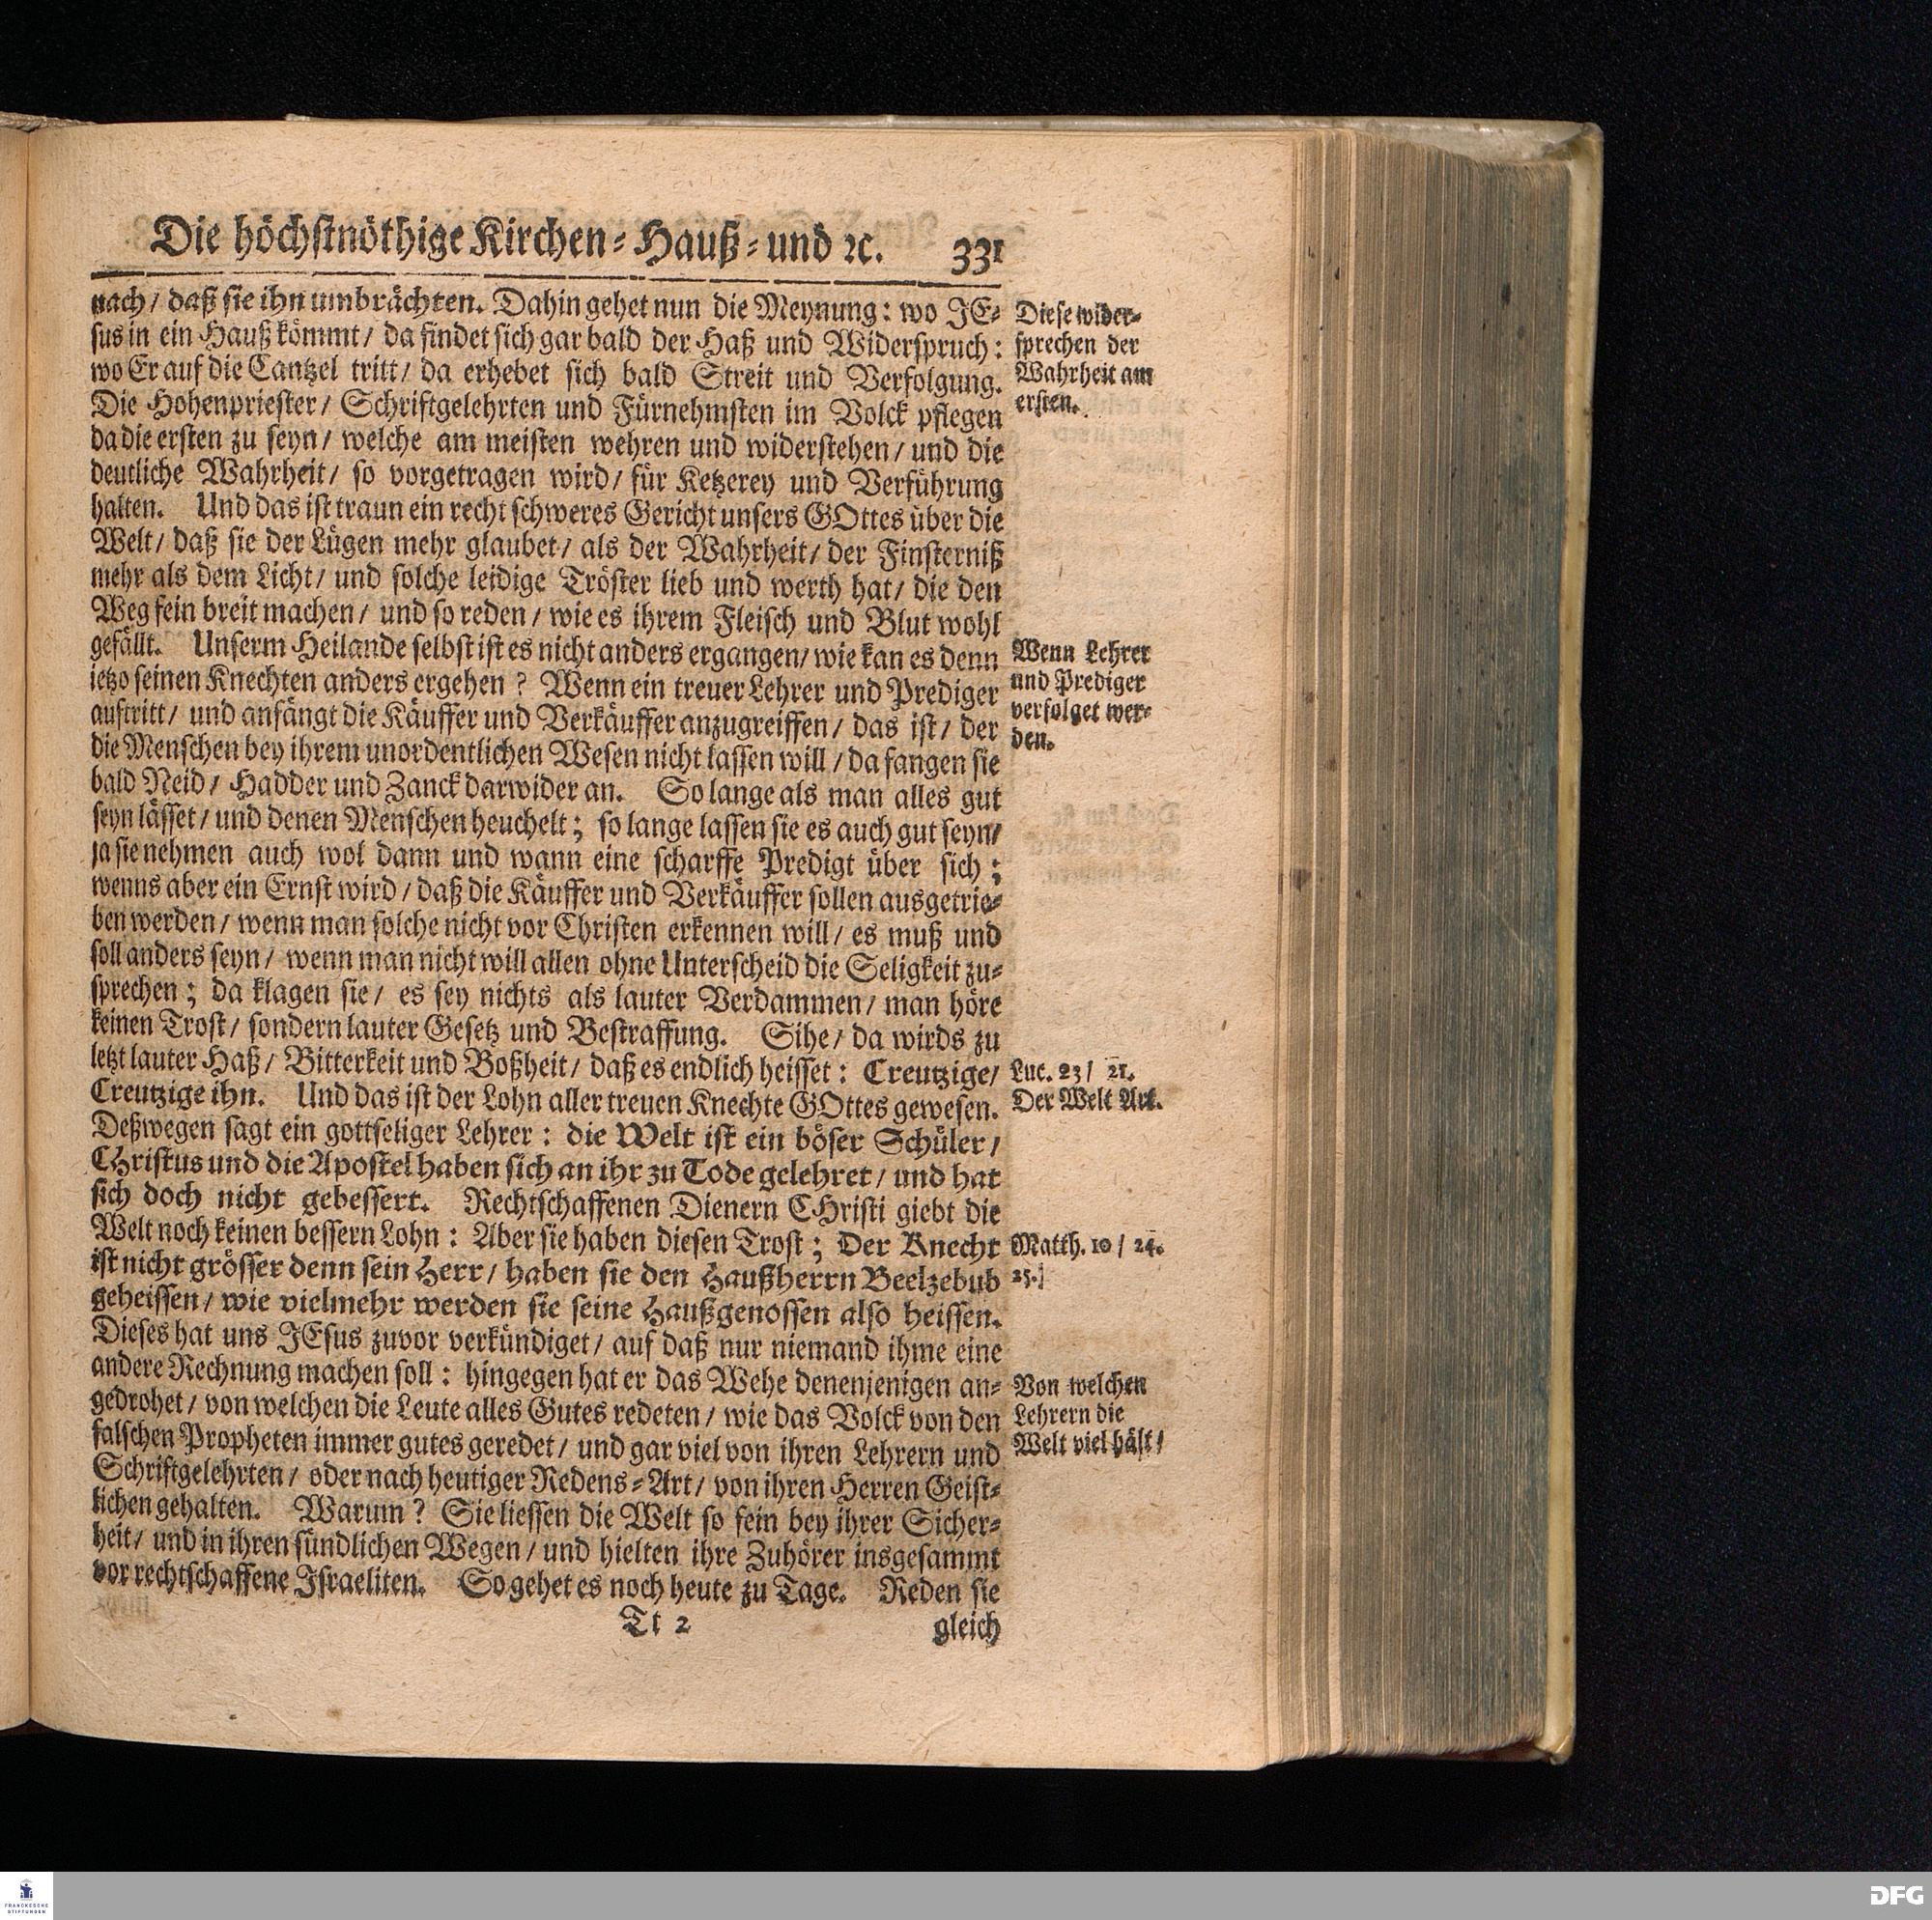 Die höchstnöthige Kirchen-Hauß-und ꝛc. 331
nach/ daß sie ihn umbrächten. Dahin gehet nun die Meynung: wo JE-
sus in ein Hauß kömmt/ da findet sich gar bald der Haß und Widerspruch:
wo Er auf die Cantzel tritt/ da erhebet sich bald Streit und Verfolgung.
Die Hohenpriester/ Schriftgelehrten und Fürnehmsten im Volck pflegen
da die ersten zu seyn/ welche am meisten wehren und widerstehen/ und die
deutliche Wahrheit/ so vorgetragen wird/ für Ketzerey und Verführung
halten. Und das ist traun ein recht schweres Gericht unsers GOttes über die
Welt/ daß sie der Lügen mehr glaubet/ als der Wahrheit/ der Finsterniß
mehr als dem Licht/ und solche leidige Tröster lieb und werth hat/ die den
Weg fein breit machen/ und so reden/ wie es ihrem Fleisch und Blut wohl
gefällt. Unserm Heilande selbst ist es nicht anders ergangen/ wie kan es denn
ietzo seinen Knechten anders ergehen? Wenn ein treuer Lehrer und Prediger
auftritt/ und anfängt die Käuffer und Verkäuffer anzugreiffen/ das ist/ der
die Menschen bey ihrem unordentlichen Wesen nicht lassen will/ da fangen sie
bald Neid/ Hadder und Zanck darwider an. So lange als man alles gut
seyn lässet/ und denen Menschen heuchelt; so lange lassen sie es auch gut seyn/
ja sie nehmen auch wol dann und wann eine scharffe Predigt über sich;
wenns aber ein Ernst wird/ daß die Käuffer und Verkäuffer sollen ausgetrie-
ben werden/ wenn man solche nicht vor Christen erkennen will/ es muß und
soll anders seyn/ wenn man nicht will allen ohne Unterscheid die Seligkeit zu-
sprechen; da klagen sie/ es sey nichts als lauter Verdammen/ man höre
keinen Trost/ sondern lauter Gesetz und Bestraffung. Sihe/ da wirds zu
letzt lauter Haß/ Bitterkeit und Boßheit/ daß es endlich heisset: Creutzige/
Creutzige ihn. Und das ist der Lohn aller treuen Knechte GOttes gewesen.
Deßwegen sagt ein gottseliger Lehrer: die Welt ist ein böser Schüler/
CHristus und die Apostel haben sich an ihr zu Tode gelehret/ und hat
sich doch nicht gebessert. Rechtschaffenen Dienern CHristi giebt die
Welt noch keinen bessern Lohn: Aber sie haben diesen Trost; Der Knecht
ist nicht grösser denn sein Herr/ haben sie den Haußherrn Beelzebub
geheissen/ wie vielmehr werden sie seine Haußgenossen also heissen.
Dieses hat uns JEsus zuvor verkündiget/ auf daß nur niemand ihme eine
andere Rechnung machen soll: hingegen hat er das Wehe denenjenigen an-
gedrohet/ von welchen die Leute alles Gutes redeten/ wie das Volck von den
falschen Propheten immer gutes geredet/ und gar viel von ihren Lehrern und
Schriftgelehrten/ oder nach heutiger Redens-Art/ von ihren Herren Geist-
lichen gehalten. Warum? Sie liessen die Welt so fein bey ihrer Sicher-
heit/ und in ihren sündlichen Wegen/ und hielten ihre Zuhörer insgesammt
vor rechtschaffene Israeliten. So gehet es noch heute zu Tage. Reden sie
Tt 2 gleich
Diese wider-
sprechen der
Wahrheit am
ersten.
Wenn Lehrer
und Prediger
verfolget wer-
den.
Luc. 23/ 21.
Der Welt Art.
Matth. 10/ 24.
25.
Von welchen
Lehrern die
Welt viel hält/
FRANCKESCHE
STIFTUNGEN
DFG